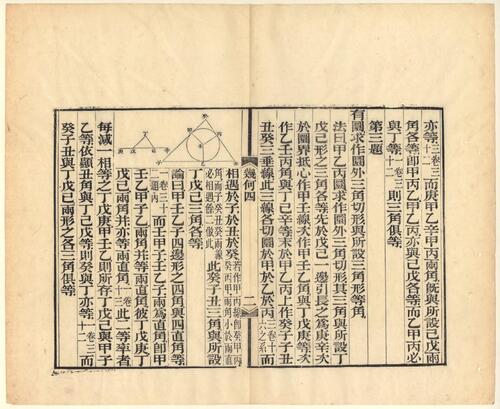 亦等三卷三十二而庚甲乙辛甲丙兩角既與所設己戊兩
角各等即甲丙乙甲乙丙亦與己戊各等而乙甲丙必
與丁等一卷三十二則三角俱等
第三題
有圜求作圜外三角切形與所設三角形等角
法曰甲乙丙圜求作圜外三角切形其三角與所設丁
戊己形之三角各等先於戊己一邊引長之為庚辛次
於圜界抵心作甲壬線次作甲壬乙角與丁戊庚等次
作乙壬丙角與丁己辛等末於甲乙丙上作癸子子丑
丑癸三垂線此三線各切圜於甲於乙於丙三卷十六之系
幾何四
二
相遇於子於丑於癸若作甲丙線即癸甲丙癸丙甲兩角小於兩直角而子癸丑癸兩線必相遇餘二倣此此癸子丑三角與所設
丁戊己三角各等
論曰甲壬乙子四邊形之四角與四直角等
一卷三二題內而壬甲子壬乙子兩為直角即甲
壬乙甲子乙兩角并等兩直角彼丁戊庚丁
戊己兩角并亦等兩直角一卷十三此二等率者
每減一相等之丁戊庚甲壬乙則所存丁戊己與甲子
乙等依顯丑角與丁己戊等則癸與丁亦等一卷三十二而
癸子丑與丁戊己兩形之各三角俱等